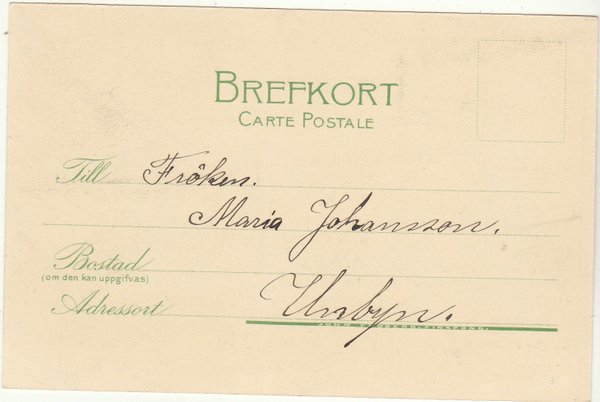 BREFKORT
CARTE POSTALE
Till Fröken.
Maria Johansson.
Bostad
(om den kan uppgifvas)
Adressort